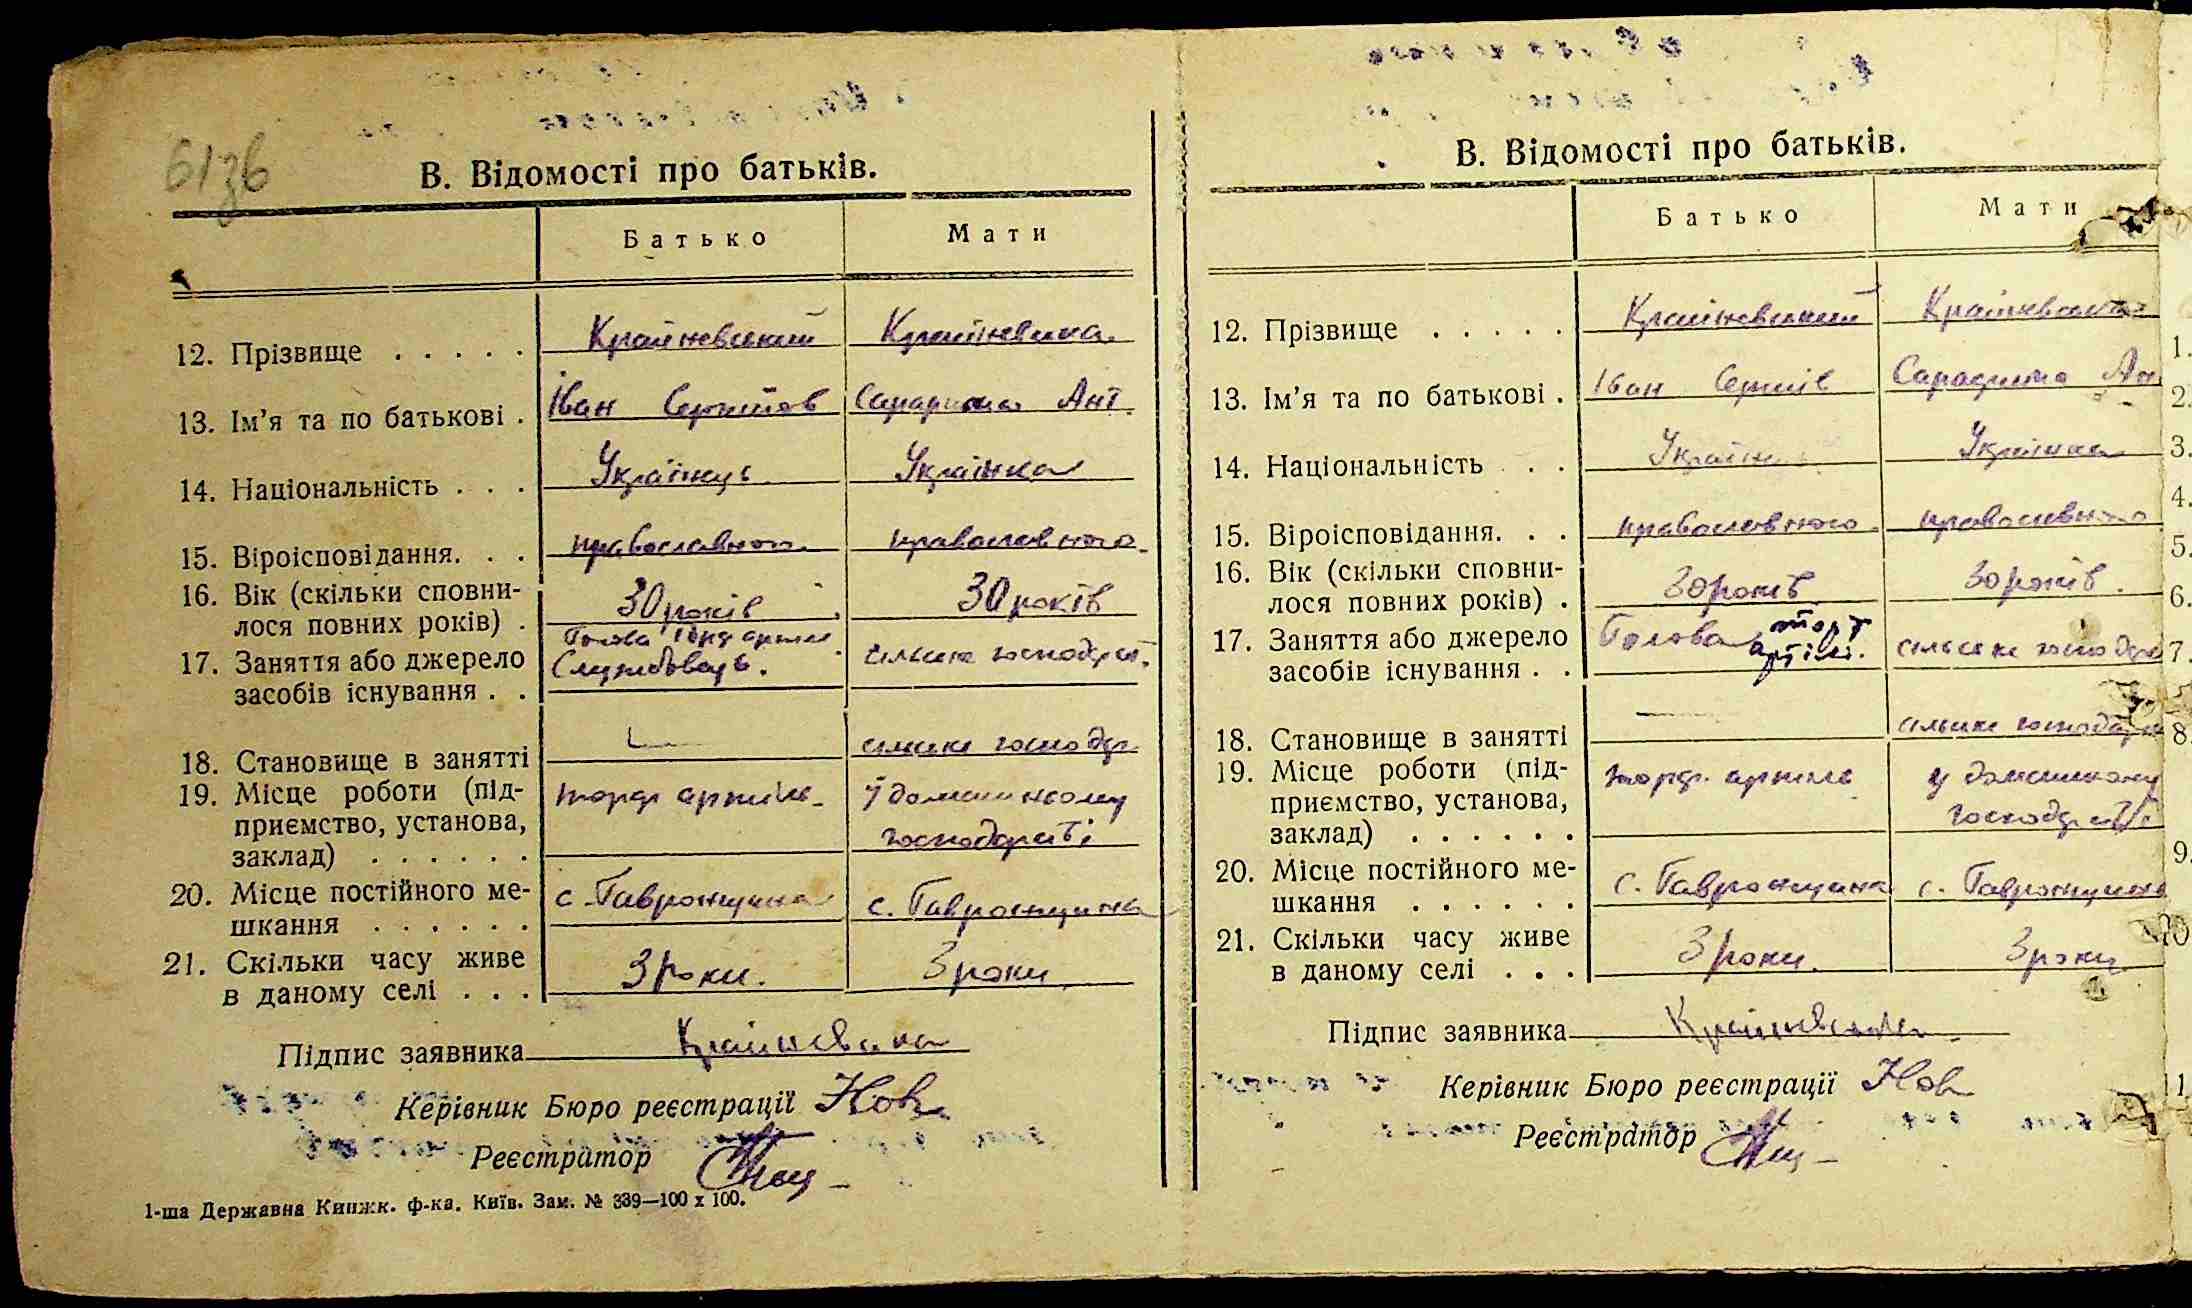 61зв
В. Відомості про батьків.
Батько Мати
12. Прізвище . . . . . Крайневський Крайневська
13. Ім’я та по батькові . Іван Сергіїв Ант.
14. Національність . . . Українець Українка
15. Віроісповідання. . . православного православного
16. Вік (скільки сповни-
лося повних років) . 30 років 30 років
17. Заняття або джерело Голова торф артіли сільське господарст.
засобів існування . . Службовець.
18. Становище в занятті — сільське господар.
19. Місце роботи (під- торф артіль У домашньому
приємство, установа, господарстві
заклад) . . . . . .
20. Місце постійного ме- с. Гавронщина с. Гавронщина
шкання . . . . . .
21. Скільки часу живе 3 роки. 3 роки
в даному селі . . .
Підпис заявника Крайневська
Керівник Бюро реєстрації Нов
Реєстратор
1-ша Державна Книжк. ф-ка. Київ. Зам. № 339—100 x 100.
В. Відомості про батьків.
Батько Мати
12. Прізвище . . . . . Крайневський Крайневська
13. Ім’я та по батькові . Іван Сергіїв Ан
14. Національність . . Українець Українка
15. Віроісповідання. . . православного православного
16. Вік (скільки сповни-
лося повних років) . 30 років 30 років.
17. Заняття або джерело Голова торф артілі. сільське господар
засобів існування . .
18. Становище в занятті — сільське господар
19. Місце роботи (під- торф. артіль у домашньому
приємство, установа, господарстві
заклад) . . . . . .
20. Місце постійного ме- с. Гавронщина с. Гавронщина
шкання . . . . . .
21. Скільки часу живе 3 роки. 3 роки
в даному селі . . .
Підпис заявника Крайневська
Керівник Бюро реєстрації Нов
Реєстратор
1.
2.
3.
4.
5.
6.
7.
8.
9.